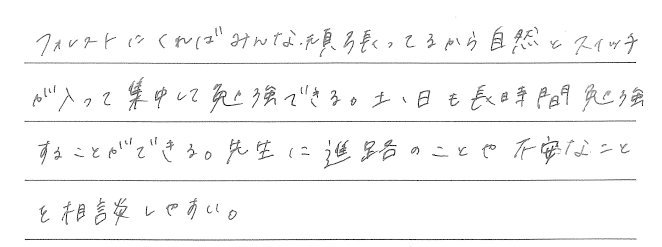 フォレストにくればみんな頑張ってるから自然とスイッチ
が入って集中して勉強できる。土、日も長時間勉強
することができる。先生に進路のことや不安なこと
を相談しやすい。